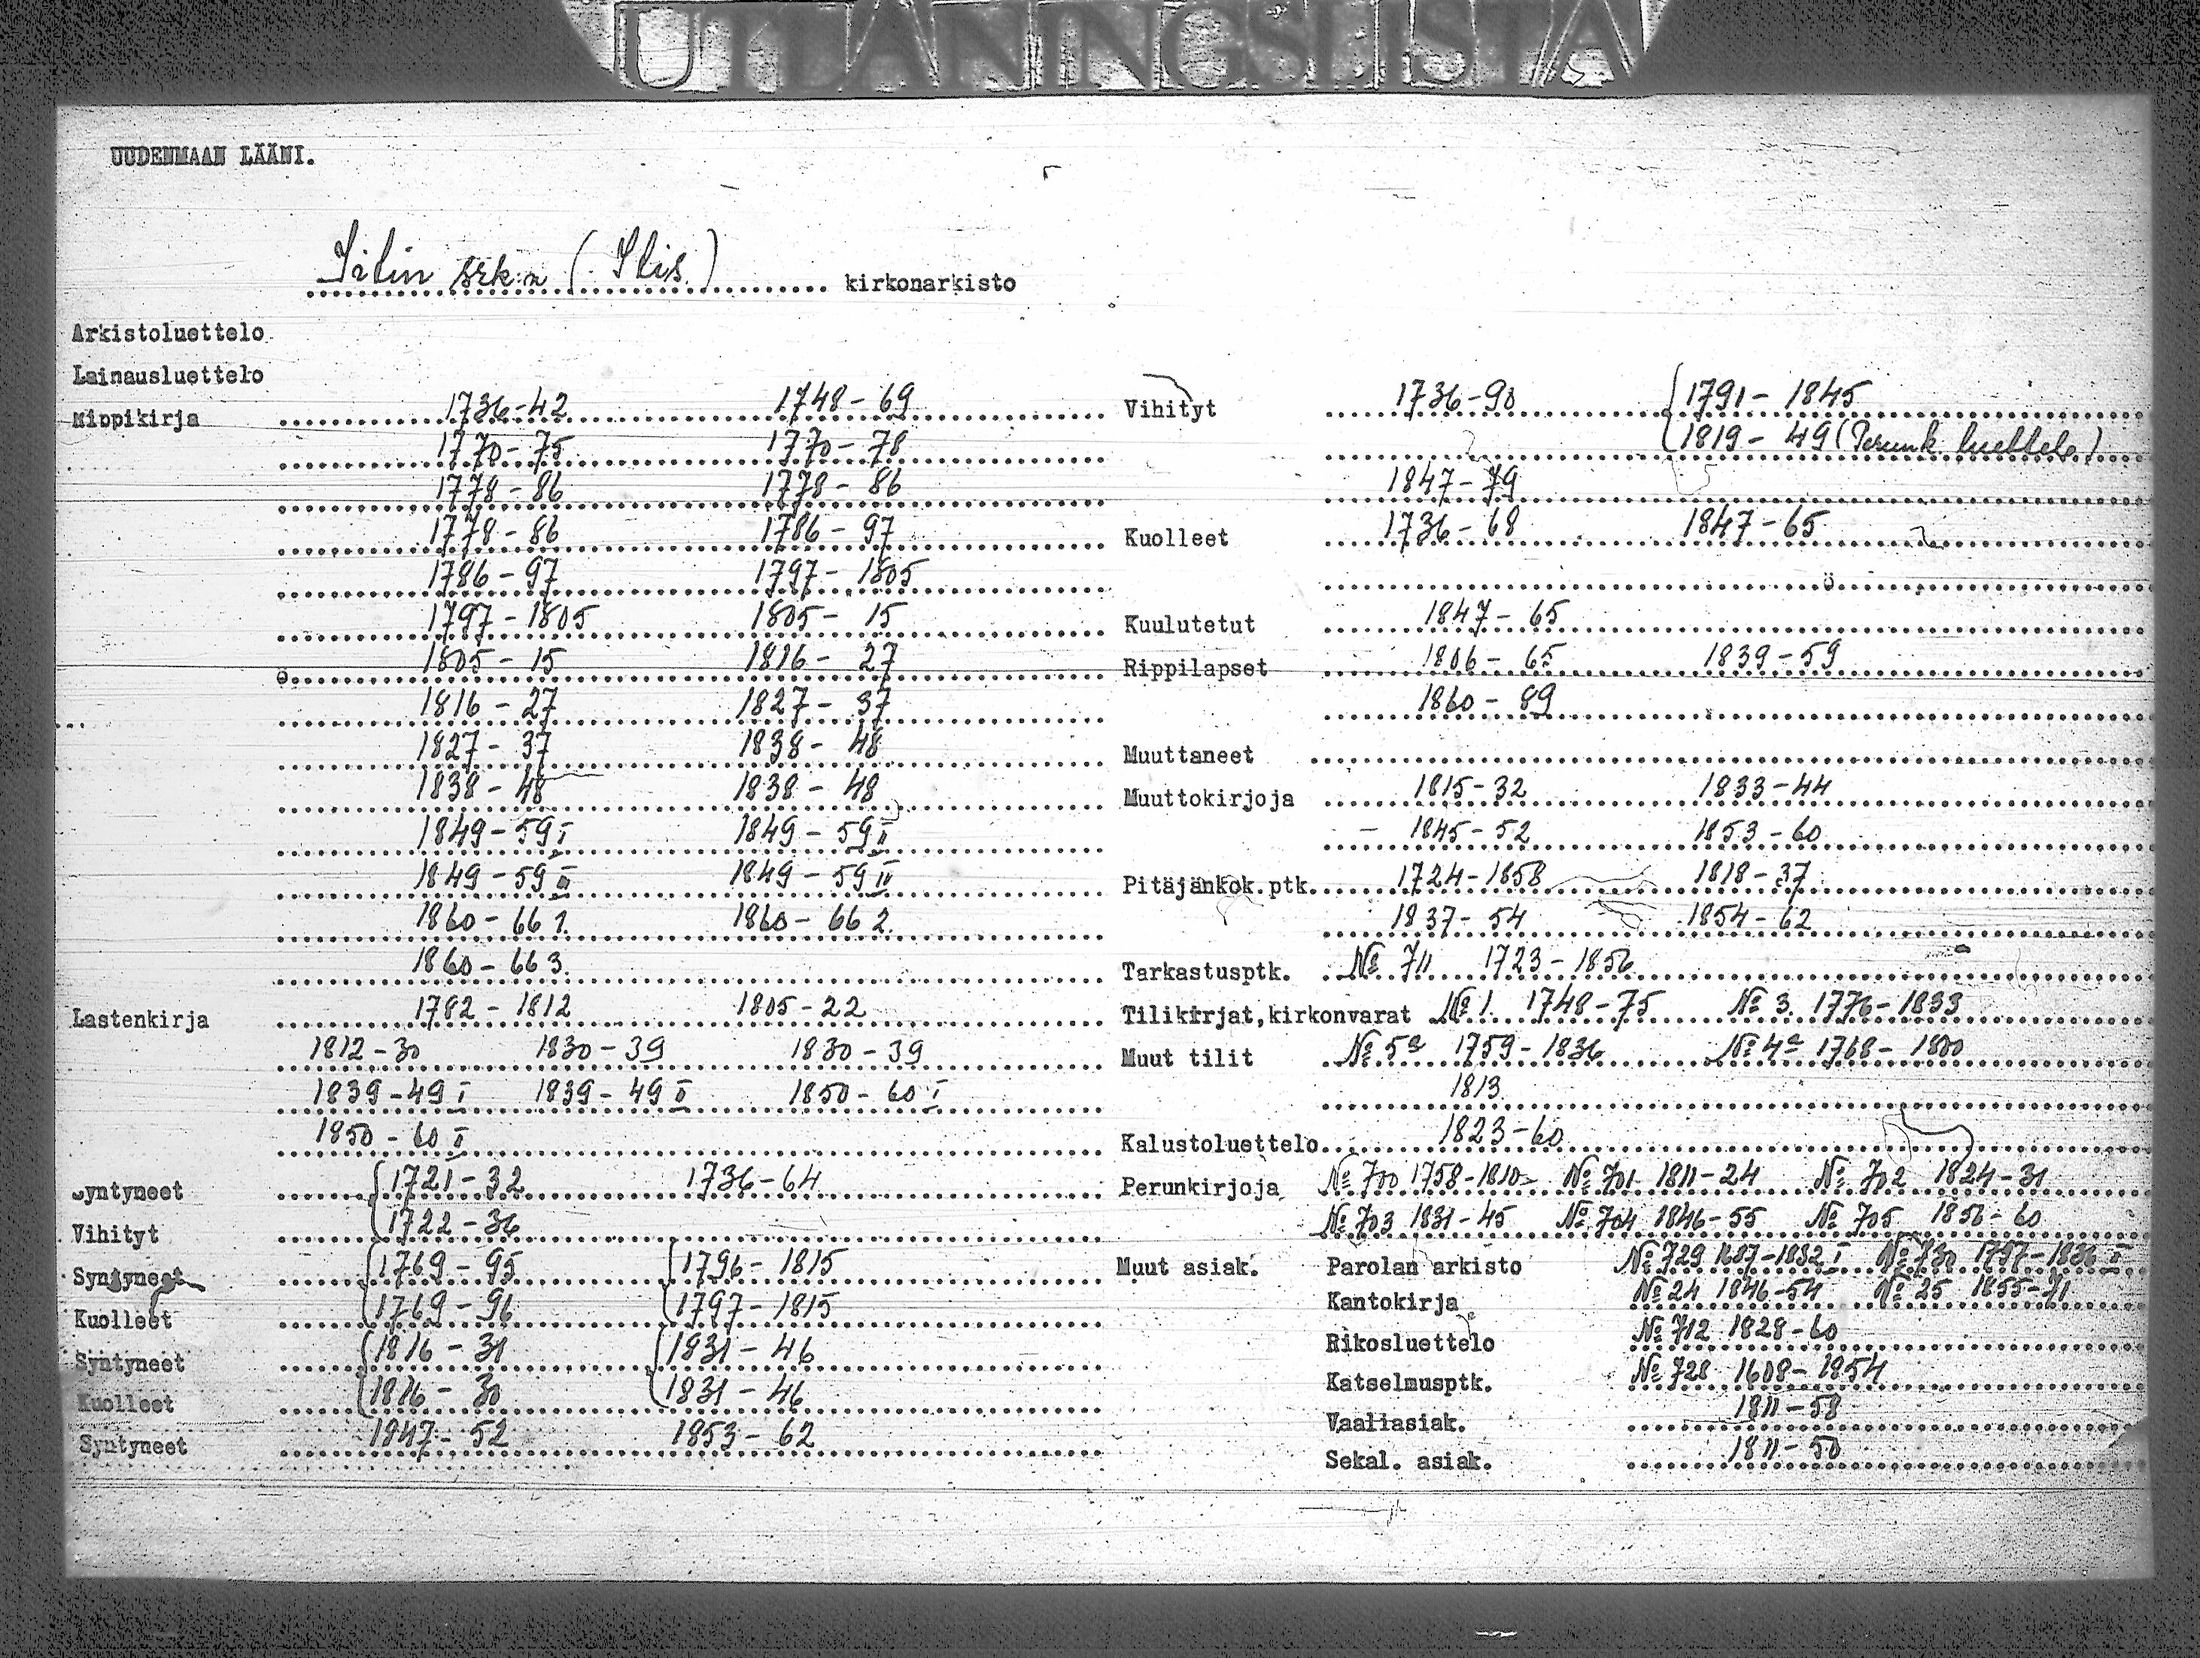 UTLÅNINGSLISTA
UUDENMAAN LÄÄNI.
Iitin srk:n (Itis.) kirkonarkisto
Arkistoluettelo
Lainausluettelo
Rippikirja 1736-42 1748-69
1770-75 1770-78
1778-86 1778-86
1778-86 1786-97
1786-97 1797-1805
1797-1805 1805-15
1805-15 1816-27
1816-27 1827-37
1827-37 1838-48
1838-48 1838-48
1849-59 I 1849-59 II
1849-59 1849-59
1860-66 1. 1860-66 2.
1860-66 3.
Lastenkirja 1792-1812 1805-22
1812-30 1830-39 1830-39
1839-49 I 1839-49 II 1850-60 I
1850-60 II
Syntyneet 1721-32 1736-64
Vihityt 1722-36
Syntyneet 1769-95 1796-1815
Kuolleet 1769-96 1797-1815
Syntyneet 1816-31 1831-46
Kuolleet 1816-30 1831-46
Syntyneet 1847-52 1853-62
Vihityt 1736-90 1791-1845
1819-49 (Perunk. luettelo)
1847-79
Kuolleet 1736-68 1847-65
Kuulutetut 1847-65
Rippilapset 1806-65 1839-59
1860-89
Muuttaneet
Muuttokirjoja 1815-32 1833-44
1845-52 1853-60
Pitäjänkok.ptk. 1724-1858 1818-37
1837-54 1854-62
Tarkastusptk. № 711 1723-1856
Tilikirjat,kirkonvarat № 1. 1748-75 № 3 1776-1833
Muut tilit № 5a 1759-1836 № 4a 1768-1800
1813
Kalustoluettelo 1823-60
Perunkirjoja № 700 1758-1810 № 701 1811-24 № 702 1824-31
№ 703 1831-45 № 704 1846-55 № 705 1856-60
Muut asiak. Parolan arkisto № 729 1687-1832 I № 730 1797-1836 II
Kantokirja № 24 1846-54 № 25 1855-71
Rikosluettelo № 712 1828-60
Katselmusptk. № 728 1608-1854
Vaaliasiak. 1811-58
Sekal. asiak. 1811-50